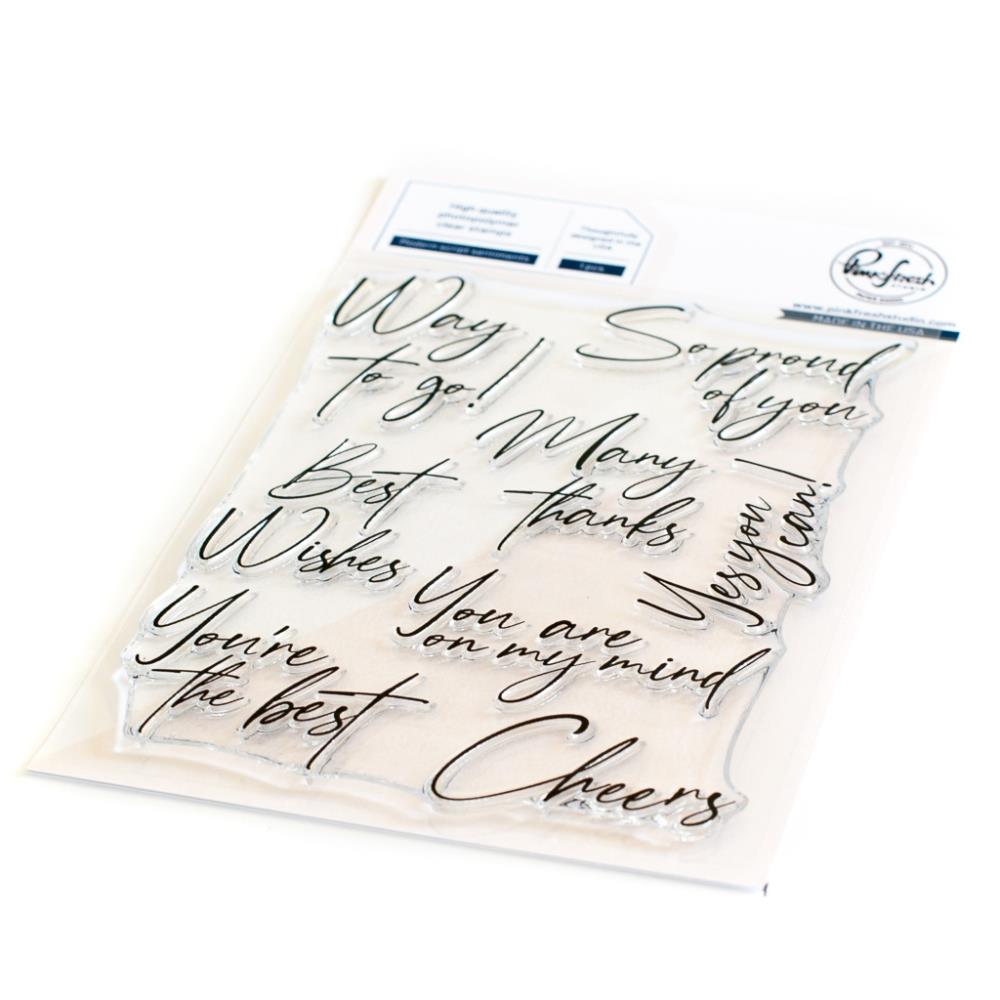 High quality
photopolymer
clear stamps
Modern script sentiments
Thoughtfully
designed in the
USA
1 pck
Pinkfresh
STUDIO
www.pinkfreshstudio.com
MADE IN THE USA
Way
to go!
So proud
of you
Many
thanks
Best
Wishes
Yes you
can!
You're
the best
You are
on my mind
Cheers